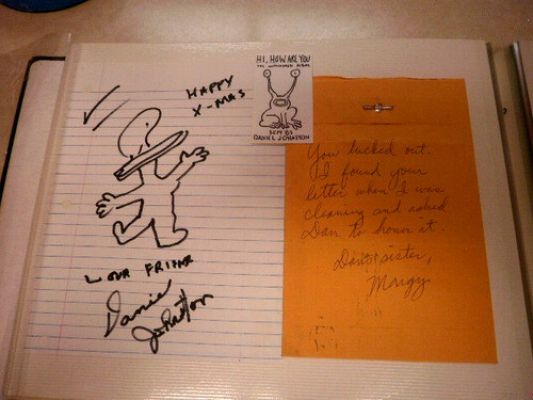 HAPPY
X-MAS
YOUR FRIEND
Daniel
Johnston
HI, HOW ARE YOU
THE UNFINISHED ALBUM
SEPT 83
DANIEL JOHNSTON
You lucked out.
I found your
letter when I was
cleaning and asked
Dan to honor it.
Dan's sister,
Margy